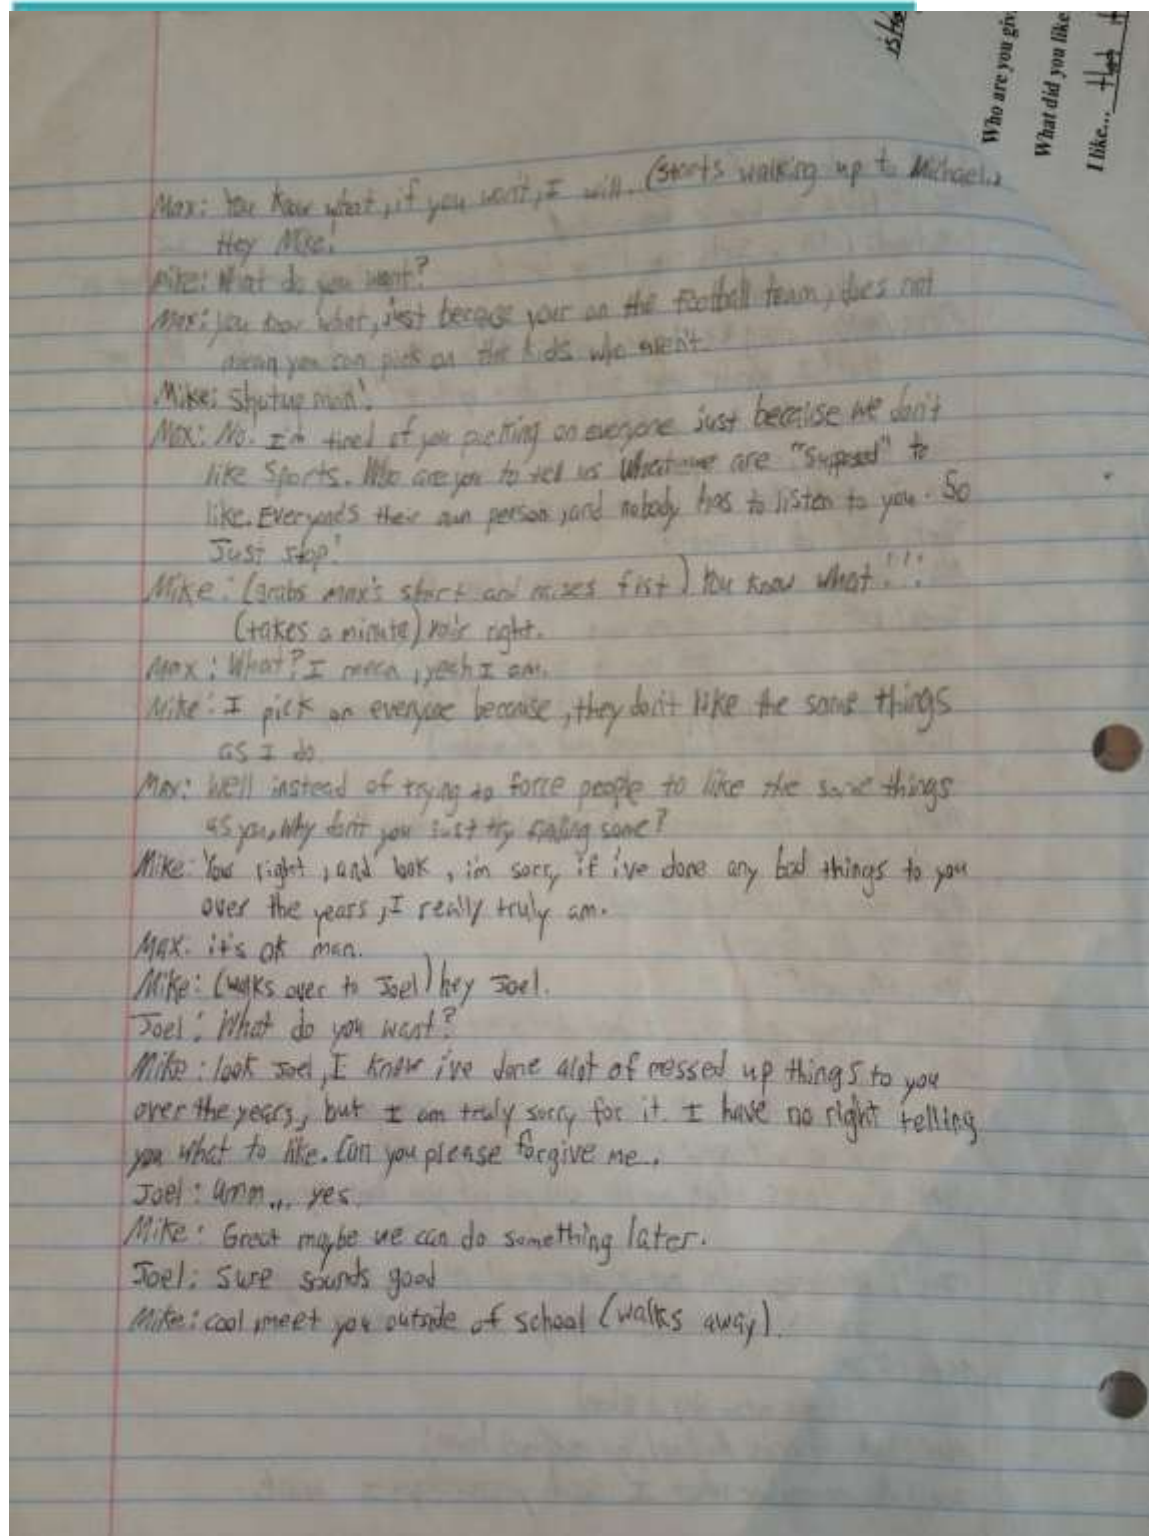 Max: You know what, if you won't, I will. (starts walking up to Michael.)
Hey Mike!
Mike: What do you want?
Max: you know what, just becaose your on the football team, does not
mean you can pick on the kids who aren't.
Mike: Shutup man!
Max: No! I'm tired of you picking on everyone just because we don't
like Sports. Who are you to tell us what we are "supposed" to
like. Everyone's their own person, and nobody has to listen to you. So
Just stop!
Mike: (grabs max's shirt and raises fist) You know what!!!
(takes a minute) right.
Max: What? I mean, yeah I am.
Mike: I pick on everyone because, they don't like the same things
as I do.
Max: Well instead of trying to force people to like the same things
as you, Why don't you just try finding some?
Mike: Your right, and look, i'm sorry if i've done any bad things to you
over the years, I really truly am.
Max: it's ok man.
Mike: (walks over to Joel) hey Joel.
Joel: What do you want?
Mike: look Joel, I know i've done alot of messed up things to you
over the years, but I am truly sorry for it. I have no right telling
you what to like. Can you please forgive me.
Joel: umm... yes.
Mike: Great maybe we can do something later.
Joel: Sure sounds good
Mike: cool meet you outside of school (walks away).
Who are you giv
What did you like
I like...